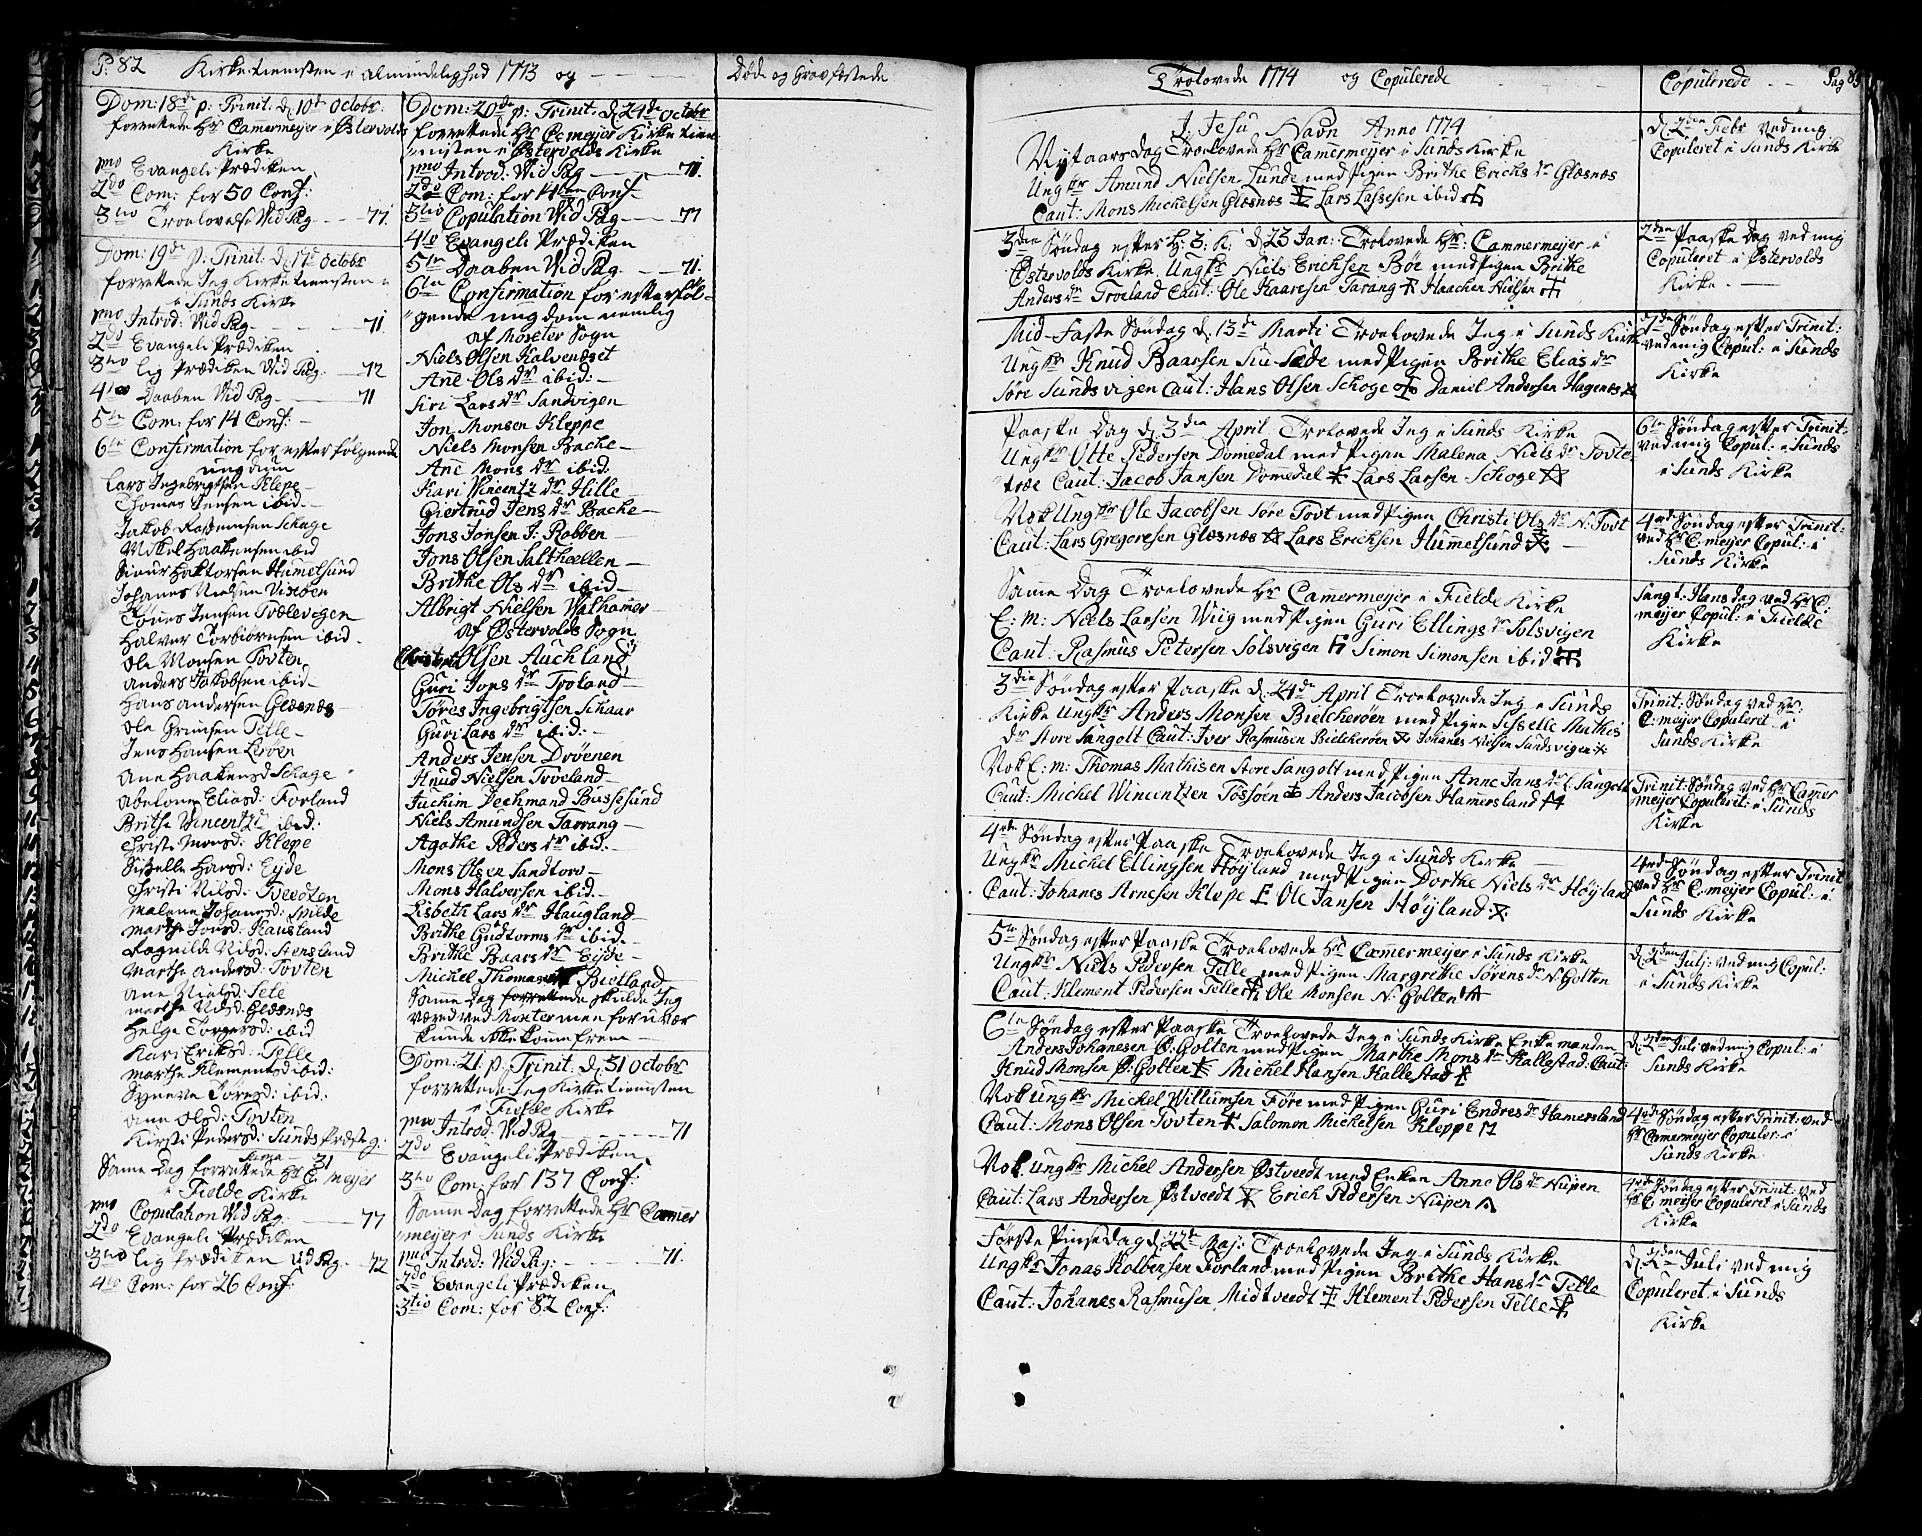 P: 82 Kirketienisten i almindelighed 1773 og
Død og Gravfestede
Dom: 18de p: Trinit: d. 10de Octobr:
forrettede Hr Cammermeijer i Østervolds
Kirke
pmo Evangeli Prædiken
2do Com: for 50 Conf:
3tio Troelovelse Vid Pag - - 77.
Dom: 19de p: Trinit: d. 17de Octobr
forrettede Jeg Kirketienisten i
i Sunds Kirke
pmo Introd: Vid Pag - - 71
2do Evangeli Prædiken
3tio lig Prædiken Vid Pag: - 72
4to Daaben Vid Pag - - 71
5te Com: for 14 Conf: -
6te Confirmation for efterfølgende
ungdom
Lars Ingebrigtsen Klepe -
Thomas Jensen ibid -
Jakob Rasmussen Schage
Mikel Haakensen ibid
Siour Haktorsen Humelsund
Johanes Nielsen Vixøen
Tøues Jensen Tvelevogen
Halver Torbiørnsen ibid -
Ole Monsen Tovten
Anders Jakobsen ibid -
Hans Andersen Glesnes
Ole Grimsen Telle -
Jens Hansen Lerøen
Ane Haakensd Schage
Abelone Eliasd: Forland
Brithe Vincentzd ibid:
Christi Monsd: Klepe
Sitzelle Hansd: Eyde
Christi Nilsd: Tveedten
Malene Johansd: Milde
Marthe Jonsd: Kausland
Ragnilde Nilsd: Stensland
Marthe Andersd: Tovten
Ane Nielsd: Sete
Marthe Nilsd: Glesnes
Helge Torgersd: ibid
Kari Eriksd: Telle
Marthe Klementsd ibid:
Syneve Tøresd: ibid:
Ane Olsd: Tovten
Kirsti Pedersd: Sunds Præsteg:
Suma 31
Same Dag forrettede Hr C: meijer
i Fielde Kirke
pmo Copulation Vid Pag - 77
2do Evangeli Prædiken
3tio lig Prædiken Vid Pag. - 72
4to Com: for 26 Conf:
Dom: 20de p: Trinit: d. 24de Octobr
forrettede Hr Cemeijer Kirke tien
nisten i Østervolds Kirke
pmo Introd: Vid Pag - 71.
2do Com: for Conf:
3tio Copulation Vid Pag - - 77
4to Evangeli Prædiken
5te Daaben Vid Pag. - - 71.
6te Confirmation for efterføl-
gende ungdom nemlig
af Møster Sogn
Niels Olsen Kalvenæset
Ane Ols dr ibid: -
Siri Lars dr Sandvigen
Jon Monsen Kleppe
Niels Monsen Bache -
Ane Mons dr ibid:
Kari Wincentz dr Hille
Giertrud Jens dr Bache -
Jons Jonsen I: Robben -
Jons Olsen Salthellen -
Brithe Ols dr ibid -
Albrigt Nielsen Valhamer
af Østervolds Sogn
Christen Olsen Auchland
Guri Jons dr Troland -
Tøres Ingebrigtsen Schaar
Guri Lars dr ibid: -
Anders Jensen Drøenen
Knud Nielsen Troeland -
Juchim Dechmand Bussesund
Niels Amundsen Tarrang -
Agathe Peders dr ibid: -
Mons Olsen Sandtorv -
Mons Halversen ibid. -
Lisbeth Lars dr Haugland -
Brithe Gudtorms dr ibid. -
Brithe Baars dr Eyde -
Michel Thomas Bietland
Same Dag forrettede skulde Jeg
været ved Møster men for uvær
kunde ikke komme frem -
Dom: 21. p: Trinit: d. 31 Octobr
forrettede Jeg Kirketienisten
i Fielde Kirke
pmo Introd: Vid Pag - - 71
2do Evangeli Prædiken
3tio Com: for 137 Conf:
Same Dag forrettede Hr Camer
meijer i Sunds Kirke
pmo Introd: Vid Pag: - - 71.
2do Evangeli Prædiken
3tio Com: for 82 Conf:
Trolovede 1774 og Copulerede
Copulerede - - Pag 83
I Jesu Navn Anno 1774
Nytaarsdag Troelovede Hr Camermeijer i Sunds Kirke
Ungkr Amund Nielsen Sunde med Pigen Brithe Erichs dr Glesnes
Caut: Mons Michelsen Glesnes Lars Lassesen ibid
d. 2den Febr ved mig
Copuleret i Sunds Kirke
3den Søndag efter H: 3: K: d 23 Jan: Trolovede Hr: Cammermeijer i
Østervolds Kirke Ungkr Niels Erichsen Bøe med Pigen Brithe
Anders dr Troeland Caut: Ole Kaaresen Tarang Haachen Nielsen
2den Paaske Dag ved mig
Copuleret i Østervolds
Kirke. -
Mid-Faste Søndag d. 13de Marti Troelovede Jeg i Sunds Kirke
Ungkr Knud Baarsen med Pigen Brithe Elias dr
Søre Sundsvigen Caut: Hans Olsen Schoge Daniel Andersen Hagenes
Søndag efter Trinit:
ved mig Copul: i Sunds
Kirke
Paaske Dag d. 3den April Trolovede Jeg i Sunds Kirke
Ungkr Otte Pedersen Domedal med Pigen Malena Niels dr Tofte-
træe Caut: Jacob Jansen Domedel Lars Larsen Schoge
6te Søndag efter Trinit:
ved mig Copul: i Sunds
i Sunds Kirke
Nok Ungkr Ole Jacobsen Søre Tovt med Pigen Christi Ols dr N: Tovt
Caut: Lars Gregoresen Glesnes Lars Erichsen Humelsund
4rde Søndag efter Trinit:
ved Hr C: meijer Copul: i
Sunds Kirke
Same Dag Troelovede Hr Camermeijer i Fielde Kirke
E: M: Niels Larsen Wiig med Pigen Guri Ellings dr Solsvigen
Caut: Rasmus Petersen Solsvigen Simon Simonsen ibid
Sangt: Hans dag ved Hr C:
meijer Copul: i Fielde
Kirke
3die Søndag efter Paaske d. 24de April Troelovede Jeg i Sunds
Kirke Ungkr Anders Monsen Bielcherøen med Pigen Sisselle Mathis
dr Store Sangolt Caut: Iver Rasmusen Bielcherøen Johanes Nielsen Sundsvigen
Trinit: Søndag ved Hr:
C: meijer Copuleret i
Sunds Kirke
Nok E: m: Thomas Mathisen Store Sangolt med Pigen Anne Jans dr l: Sangolt
Caut: Michel Wincentzen Tøssøen Anders Jacobsen Hamersland
Trinit: Søndag ved Hr Camer
meijer Copuleret i Sunds
Kirke
4rde Søndag efter Paaske Troelovede Jeg i Sunds Kirke
Ungkr Michel Ellingsen Høyland med Pigen Dorthe Niels dr Høyland
Caut: Johanes Arnesen Klepe Ole Jansen Høyland
4rde Søndag efter Trinit
ved Hr C: meijer Copul: i
Sunds Kirke
5te Søndag efter Paaske Troelovede Hr Camermeijer i Sunds Kirke
Ungkr Niels Pedersen Telle med Pigen Margrethe Sørens dr N: Golten
Caut: Klement Pedersen Telle Ole Monsen N: Golten
d. 2den Julj: ved mig Copul:
i Sunds Kirke
6te Søndag efter Paaske Troelovede Jeg i Sunds Kirke Enkemanden
Anders Johanesen Ø: Golten med Pigen Marthe Mons dr Hallestad: Caut:
Knud Monsen Ø: Golten Michel Hansen Hallestad
d. 2den Juli ved mig Copul: i
Sunds Kirke
Nok Ungkr Michel Willumsen Føre med Pigen Guri Endres dr Hamersland
Caut: Mons Olsen Tovten Salomon Michelsen Kleppe
4rde Søndag efter Trinit: ved
Hr Camermeijer Copuler: i
Sunds Kirke
Nok Ungkr Michel Andersen Østveedt med Enken Anne Ols dr Nipen
Caut: Lars Andersen Østveedt Erich Pedersen Nipen
4rde Søndag efter Trinit: ved
Hr C: meijer Copuleret i Sunds
Kirke
Første Pinse Dag d. 22de Maj: Troelovede Jeg i Sunds Kirke
Ungkr Jonas Kolbensen Forland med Pigen Brithe Hans dr Telle
Caut: Johanes Rasmusen Midtveedt Klement Pedersen Telle
d. 2den Juli ved mig
Copuleret i Sunds
Kirke